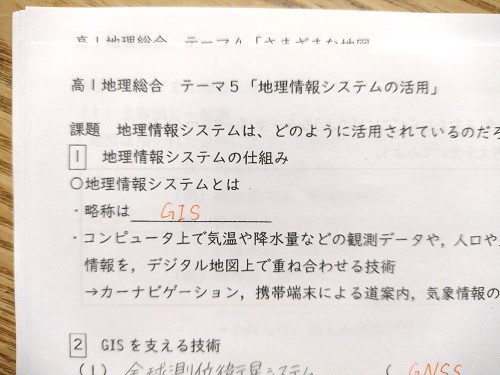 高Ⅰ地理総合 テーマ4「さまざまな地図
高Ⅰ地理総合 テーマ5「地理情報システムの活用」
課題 地理情報システムは、どのように活用されているのだろ
1 地理情報システムの仕組み
〇地理情報システムとは
・略称は GIS
・コンピュータ上で気温や降水量などの観測データや，人口や
情報を，デジタル地図上で重ね合わせる技術
→カーナビゲーション，携帯端末による道案内，気象情報の
2 GISを支える技術
(1) 全球測位衛星システム ( GNSS